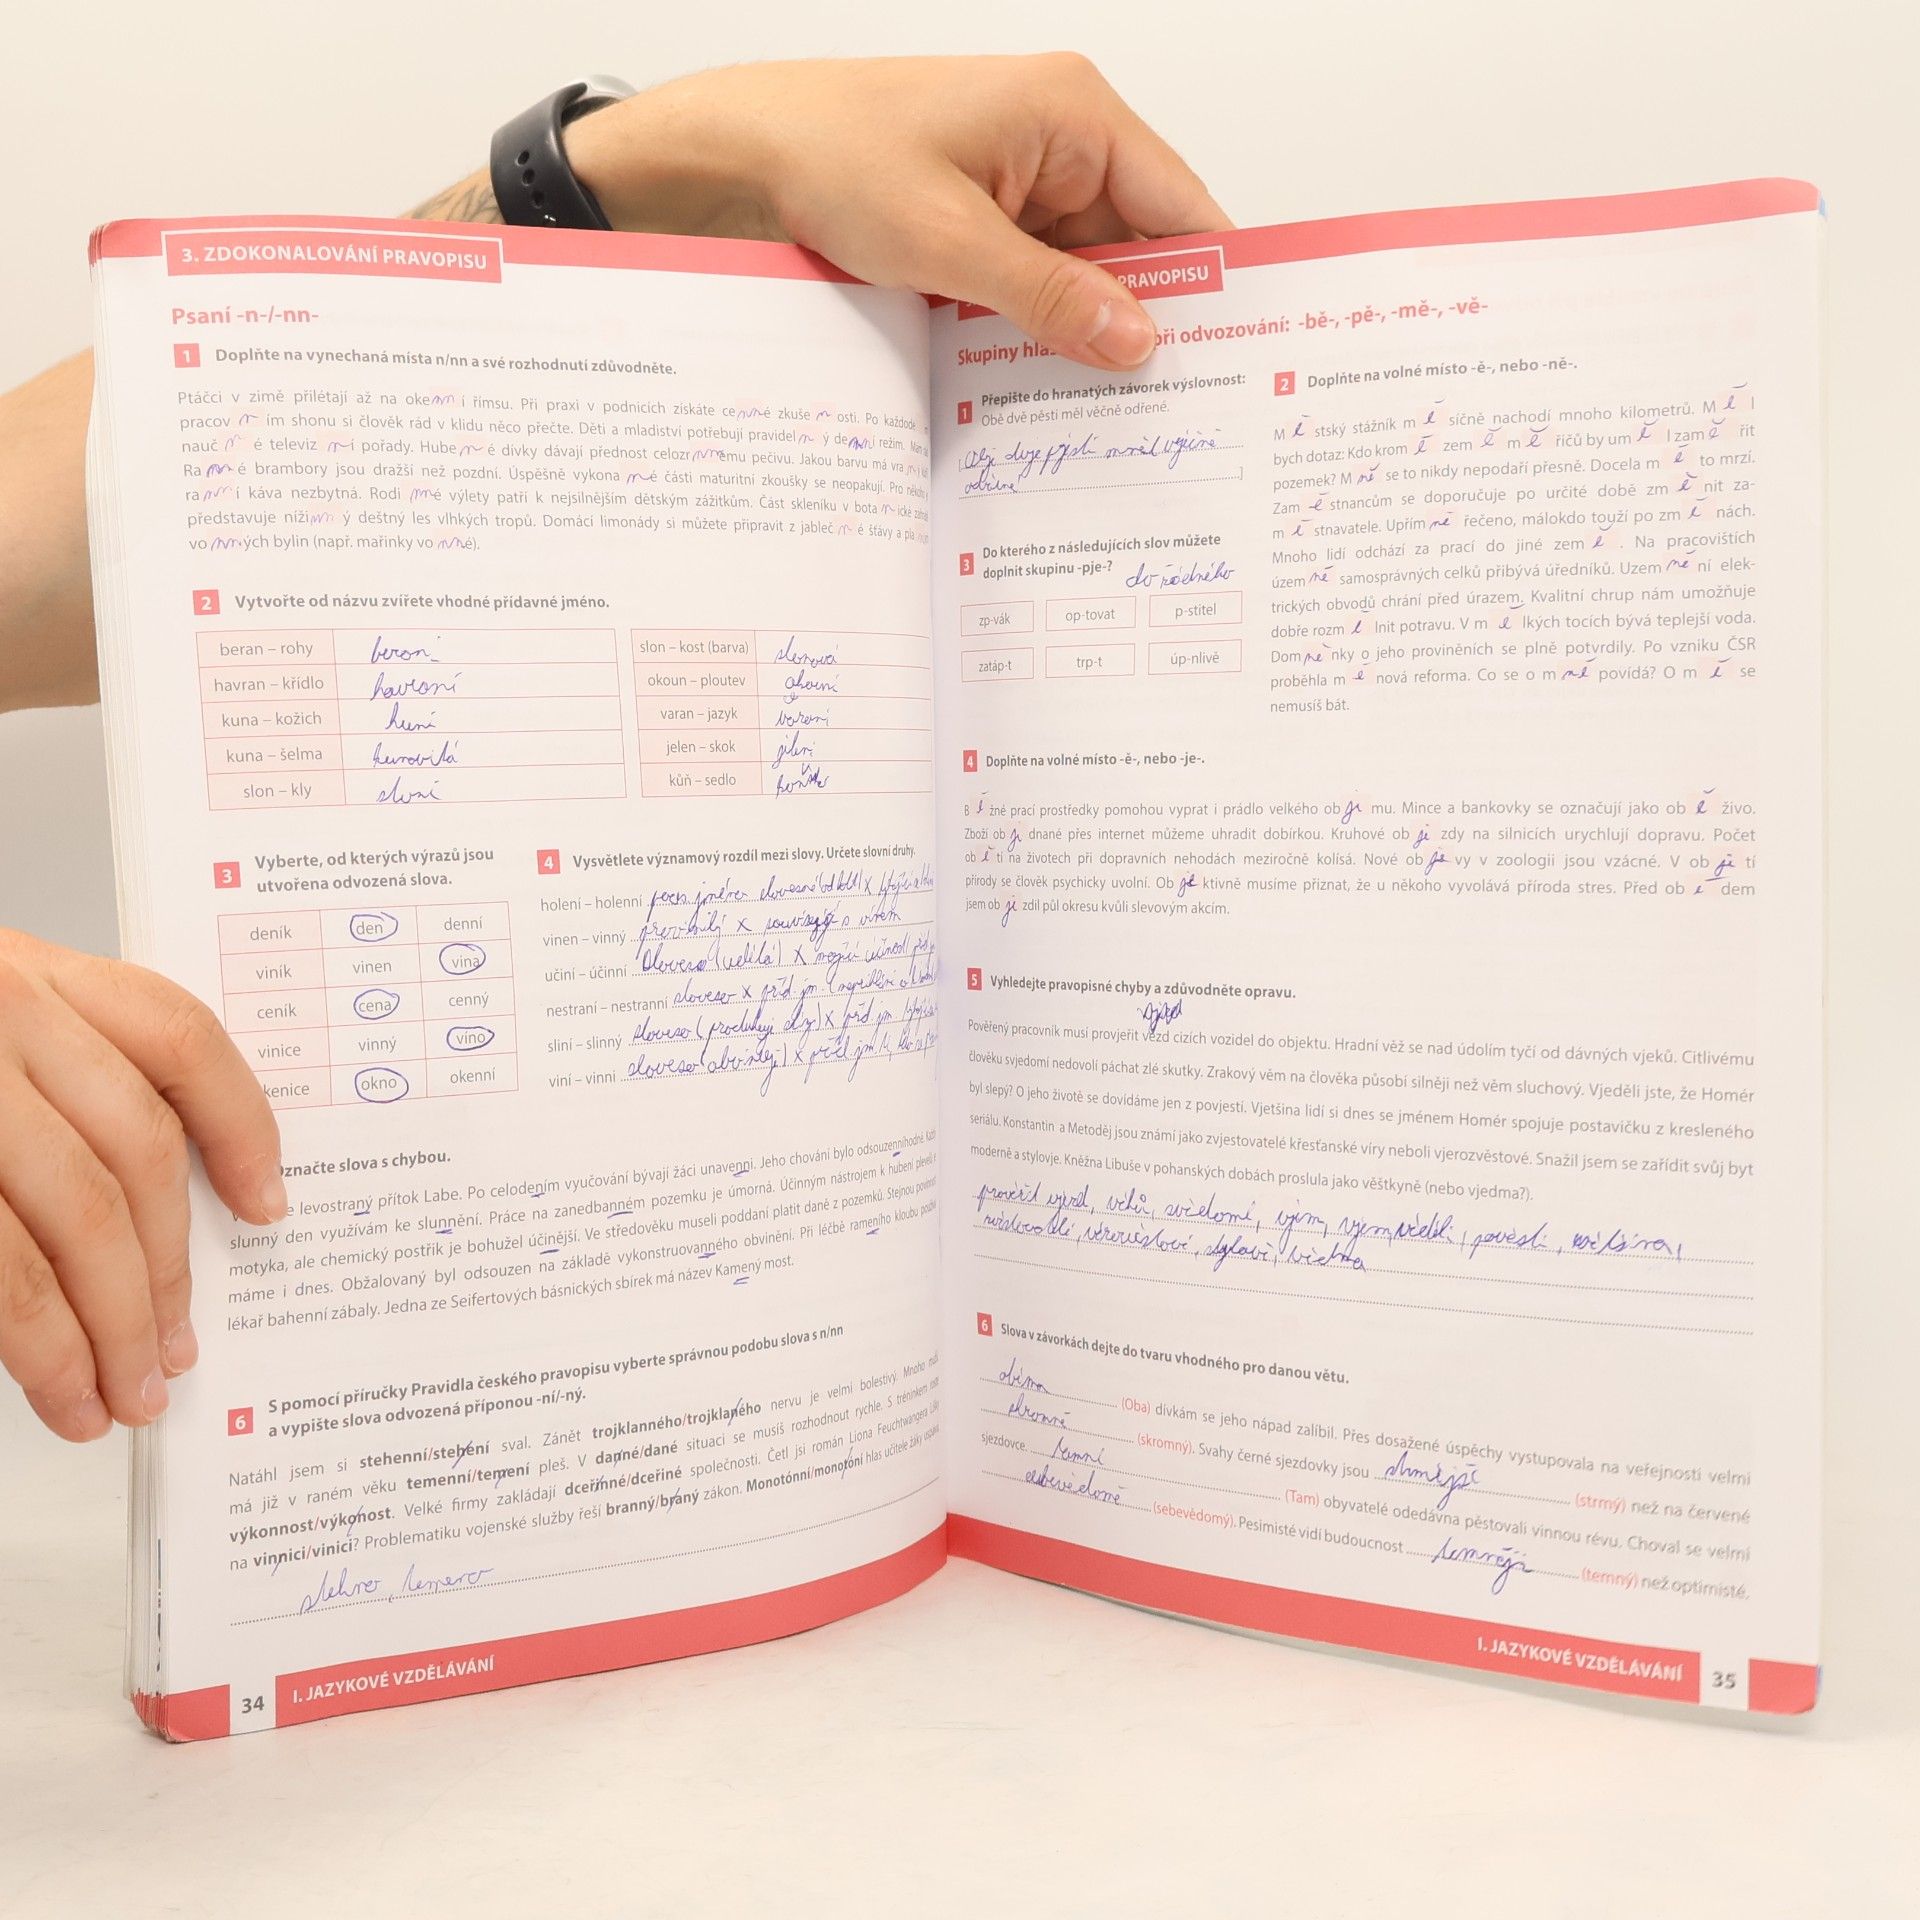 3. ZDOKONALOVÁNÍ PRAVOPISU
Psaní -n-/-nn-
1 Doplňte na vynechaná místa n/nn a své rozhodnutí zdůvodněte.
Ptáčci v zimě přilétají až na oke nn í římsu. Při praxi v podnicích získáte ce nn é zkuše n osti. Po každode
pracov n ím shonu si člověk rád v klidu něco přečte. Děti a mladiství potřebují pravidel n ý de nn í režim.
nauč n é televiz n í pořady. Hube n é dívky dávají přednost celozr nn ému pečivu. Jakou barvu má vra n í
Ra nn é brambory jsou dražší než pozdní. Úspěšně vykona n é části maturitní zkoušky se neopakují. Pro
ra nn í káva nezbytná. Rodi nn é výlety patří k nejsilnějším dětským zážitkům. Část skleníku v bota n ické
představuje níži nn ý deštný les vlhkých tropů. Domácí limonády si můžete připravit z jableč n é šťávy a pla
vo nn ých bylin (např. mařinky vo nn é).
2 Vytvořte od názvu zvířete vhodné přídavné jméno.
beran – rohy beraní slon – kost (barva) slonová
havran – křídlo havraní okoun – ploutev okouní
kuna – kožich kuní varan – jazyk varaní
kuna – šelma kunovitá jelen – skok jelení
slon – kly sloní kůň – sedlo koňské
3 Vyberte, od kterých výrazů jsou
utvořena odvozená slova.
deník den denní
viník vinen vina
ceník cena cenný
vinice vinný víno
kenice okno okenní
4 Vysvětlete významový rozdíl mezi slovy. Určete slovní druhy.
holení – holenní podst. jméno slovesné (od holit) x
vinen – vinný provinilý x související s vínem
učiní – účinní sloveso (udělá) x mající účinnost
nestraní – nestranní sloveso x příd. jm.
sliní – slinný sloveso (produkuje sliny) x příd. jm.
viní – vinni sloveso (obviňuje) x příd. jm.
Označte slova s chybou.
e levostraný přítok Labe. Po celodením vyučování bývají žáci unavenni. Jeho chování bylo odsouzenníhodné.
slunný den využívám ke slunnění. Práce na zanedbanném pozemku je úmorná. Účinným nástrojem k hubení plevelů
motyka, ale chemický postřik je bohužel účinější. Ve středověku museli poddaní platit daně z pozemků. Stejnou
máme i dnes. Obžalovaný byl odsouzen na základě vykonstruovanného obvinění. Při léčbě rameního kloubu
lékař bahenní zábaly. Jedna ze Seifertových básnických sbírek má název Kamený most.
6 S pomocí příručky Pravidla českého pravopisu vyberte správnou podobu slova s n/nn
a vypište slova odvozená příponou -ní/-ný.
Natáhl jsem si stehenní/stehení sval. Zánět trojklanného/trojklaného nervu je velmi bolestivý. Mnoho
má již v raném věku temenní/temení pleš. V danné/dané situaci se musíš rozhodnout rychle. S tréninkem
výkonnost/výkonost. Velké firmy zakládají dceřinné/dceřiné společnosti. Četl jsi román Liona Feuchtwangera
na vinnici/vinici? Problematiku vojenské služby řeší branný/braný zákon. Monotónní/monotóní hlas učitele žáky
stehno, temeno
34 I. JAZYKOVÉ VZDĚLÁVÁNÍ
PRAVOPISU
Skupiny při odvozování: -bě-, -pě-, -mě-, -vě-
1 Přepište do hranatých závorek výslovnost:
Obě dvě pěsti měl věčně odřené.
[obje dvje pjesti mněl vječně
odřené ]
3 Do kterého z následujících slov můžete
doplnit skupinu -pje-?
do žádného
zp-vák op-tovat p-stitel
zatáp-t trp-t úp-nlivě
2 Doplňte na volné místo -ě-, nebo -ně-.
M ě stský strážník m ě síčně nachodí mnoho kilometrů. M ě l
bych dotaz: Kdo krom ě zem ě m ě řičů by um ě l zam ě řit
pozemek? M ně se to nikdy nepodaří přesně. Docela m ě to mrzí.
Zam ě stnancům se doporučuje po určité době zm ě nit za-
m ě stnavatele. Upřím ně řečeno, málokdo touží po zm ě nách.
Mnoho lidí odchází za prací do jiné zem ě . Na pracovištích
územ ně samosprávných celků přibývá úředníků. Uzem ně ní elek-
trických obvodů chrání před úrazem. Kvalitní chrup nám umožňuje
dobře rozm ě lnit potravu. V m ě lkých tocích bývá teplejší voda.
Dom ně nky o jeho proviněních se plně potvrdily. Po vzniku ČSR
proběhla m ě nová reforma. Co se o m ně povídá? O m ě se
nemusíš bát.
4 Doplňte na volné místo -ě-, nebo -je-.
B ě žné prací prostředky pomohou vyprat i prádlo velkého ob je mu. Mince a bankovky se označují jako ob ě živo.
Zboží ob je dnané přes internet můžeme uhradit dobírkou. Kruhové ob je zdy na silnicích urychlují dopravu. Počet
ob ě tí na životech při dopravních nehodách meziročně kolísá. Nové ob je vy v zoologii jsou vzácné. V ob je tí
přírody se člověk psychicky uvolní. Ob je ktivně musíme přiznat, že u někoho vyvolává příroda stres. Před ob ě dem
jsem ob je zdil půl okresu kvůli slevovým akcím.
5 Vyhledejte pravopisné chyby a zdůvodněte opravu.
vjezd
Pověřený pracovník musí provjeřit vězd cizích vozidel do objektu. Hradní věž se nad údolím tyčí od dávných vjeků. Citlivému
člověku svjedomí nedovolí páchat zlé skutky. Zrakový věm na člověka působí silněji než věm sluchový. Vjeděli jste, že Homér
byl slepý? O jeho životě se dovídáme jen z povjestí. Vjetšina lidí si dnes se jménem Homér spojuje postavičku z kresleného
seriálu. Konstantin a Metoděj jsou známí jako zvjestovatelé křesťanské víry neboli vjerozvěstové. Snažil jsem se zařídit svůj byt
moderně a stylovje. Kněžna Libuše v pohanských dobách proslula jako věštkyně (nebo vjedma?).
prověřit vjezd, věků, svědomí, vjem, vjem, věděli, pověstí, většina,
zvěstovatelé, věrozvěstové, stylově, vědma
6 Slova v závorkách dejte do tvaru vhodného pro danou větu.
oběma (Oba) dívkám se jeho nápad zalíbil. Přes dosažené úspěchy vystupovala na veřejnosti velmi
skromně (skromný). Svahy černé sjezdovky jsou strmější (strmý) než na červené
sjezdovce. tamní (Tam) obyvatelé odedávna pěstovali vinnou révu. Choval se velmi
sebevědomě (sebevědomý). Pesimisté vidí budoucnost temněji (temný) než optimisté.
I. JAZYKOVÉ VZDĚLÁVÁNÍ 35